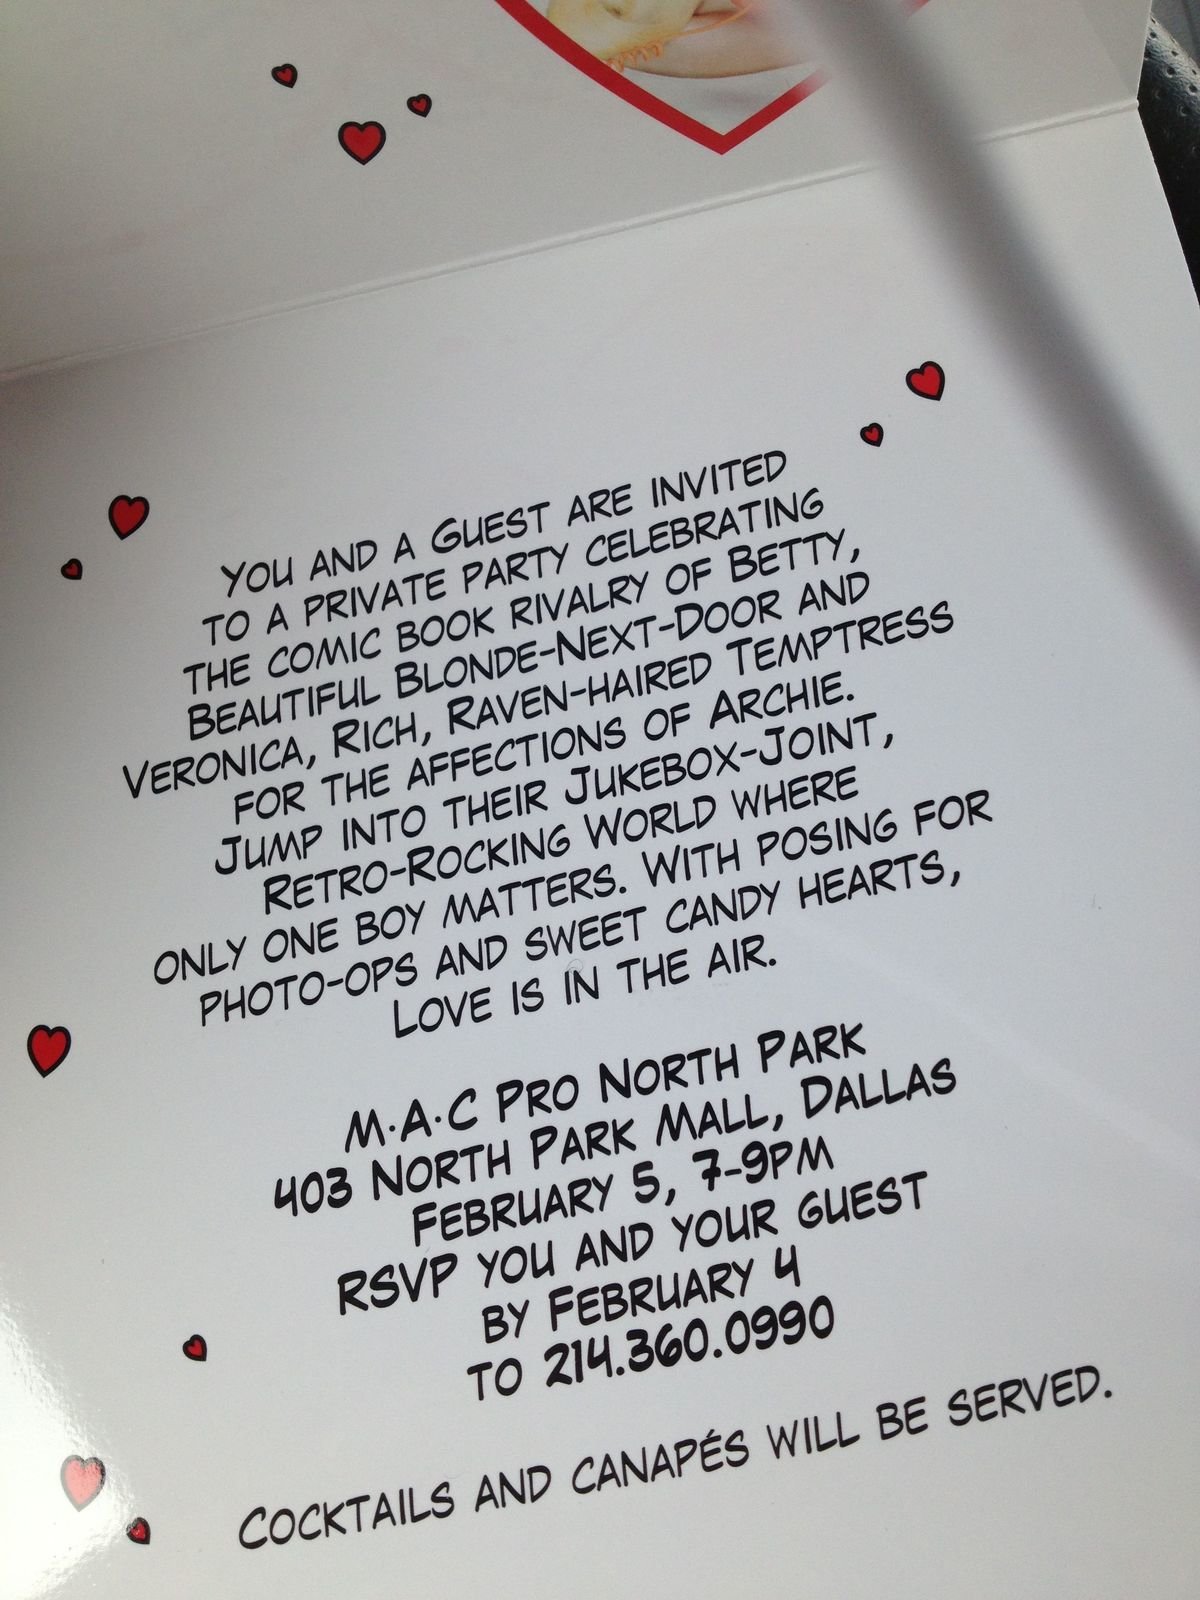 You and a Guest are invited
to a private party celebrating
the comic book rivalry of Betty,
Beautiful Blonde-Next-Door and
Veronica, Rich, Raven-haired Temptress
for the affections of Archie.
Jump into their Jukebox-Joint,
Retro-Rocking World where
only one boy matters. With posing for
photo-ops and sweet candy hearts,
Love is in the air.
M·A·C Pro North Park
403 North Park Mall, Dallas
February 5, 7-9pm
RSVP you and your guest
by February 4
to 214.360.0990
Cocktails and canapés will be served.